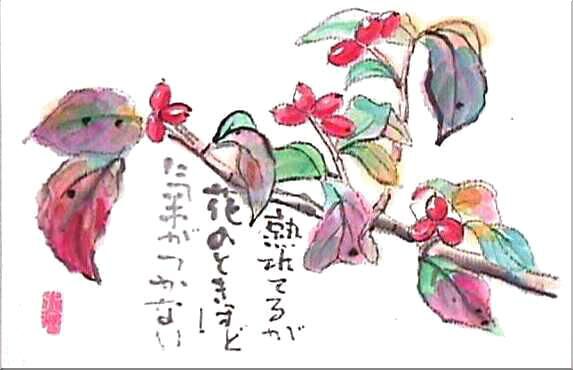 熟れてるが
花のときほど!
氣がつかない